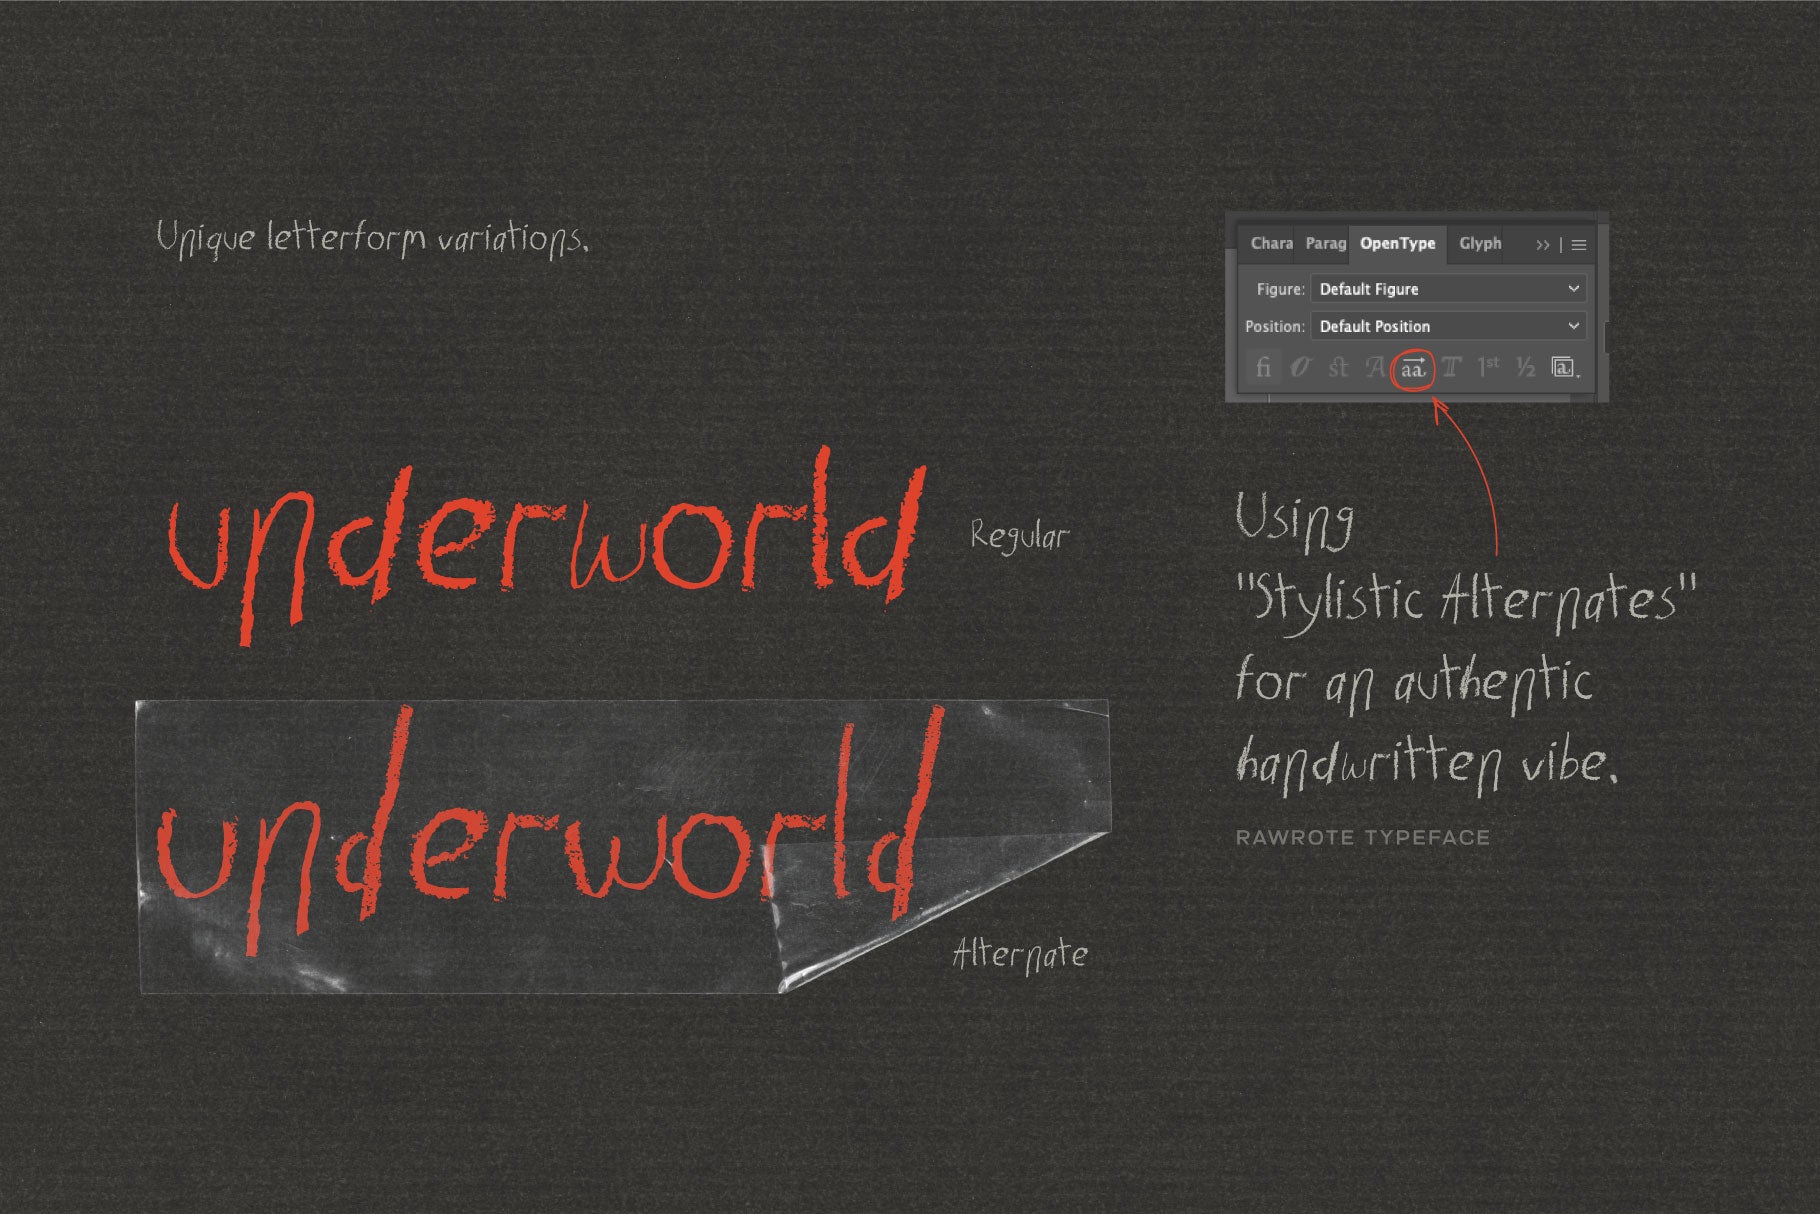 Unique letterform variations.
Chara Parag OpenType Glyph >> | ≡
Figure: Default Figure
Position: Default Position
fi O st A aa T 1st ½ a
underworld
Regular
underworld
Alternate
Using
"Stylistic Alternates"
for an authentic
handwritten vibe.
RAWROTE TYPEFACE